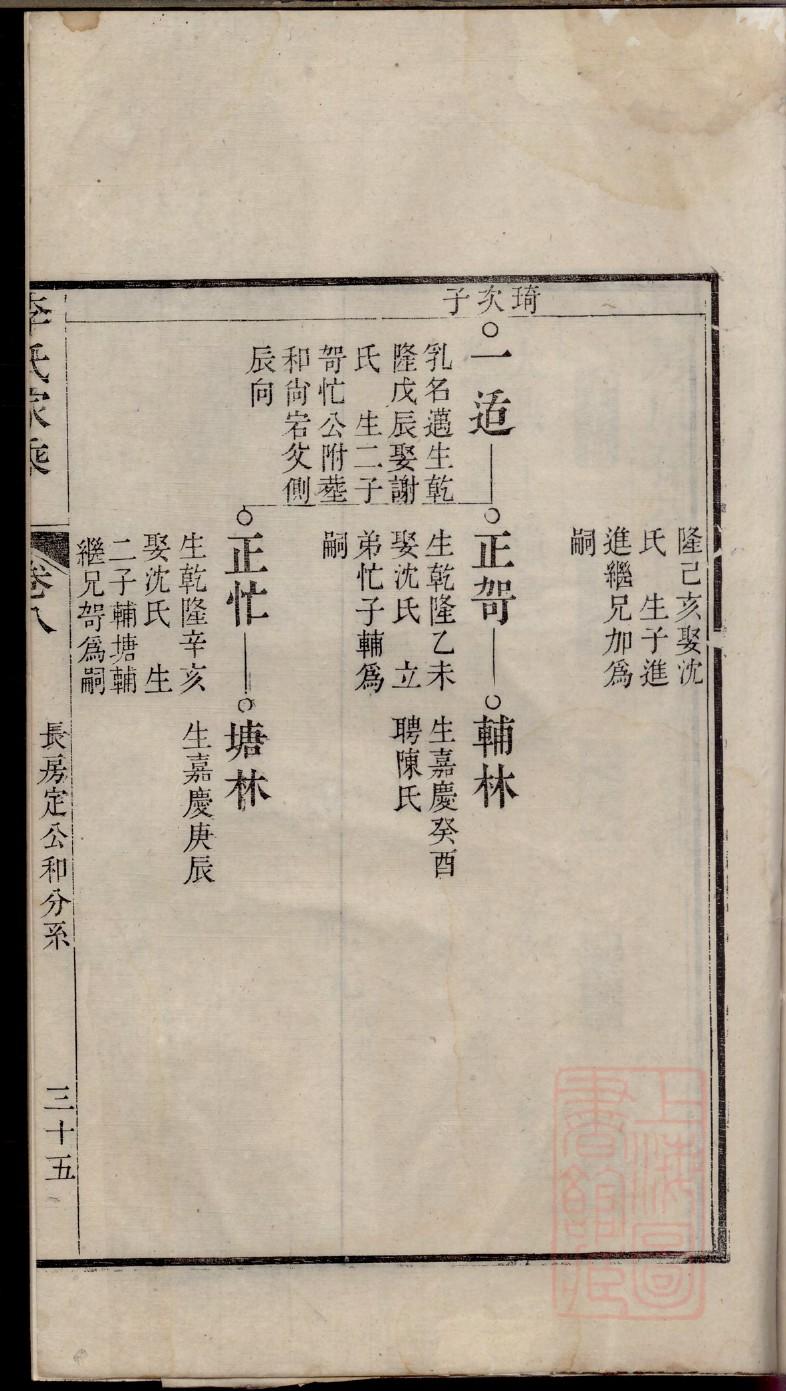 隆己亥娶沈
氏　生子進
進繼兄加爲
嗣
琦次子
一适
乳名邁生乾
隆戊辰娶謝
氏　生二子
哿忙公附塟
和尙宕父側
辰向
正哿
生乾隆乙未
娶沈氏　立
弟忙子輔爲
嗣
輔林
生嘉慶癸酉
聘陳氏
正忙
生乾隆辛亥
娶沈氏　生
二子輔塘輔
繼兄哿爲嗣
塘林
生嘉慶庚辰
李氏家乘
卷八
長房定公和分系
三十五
上海圖
書館藏